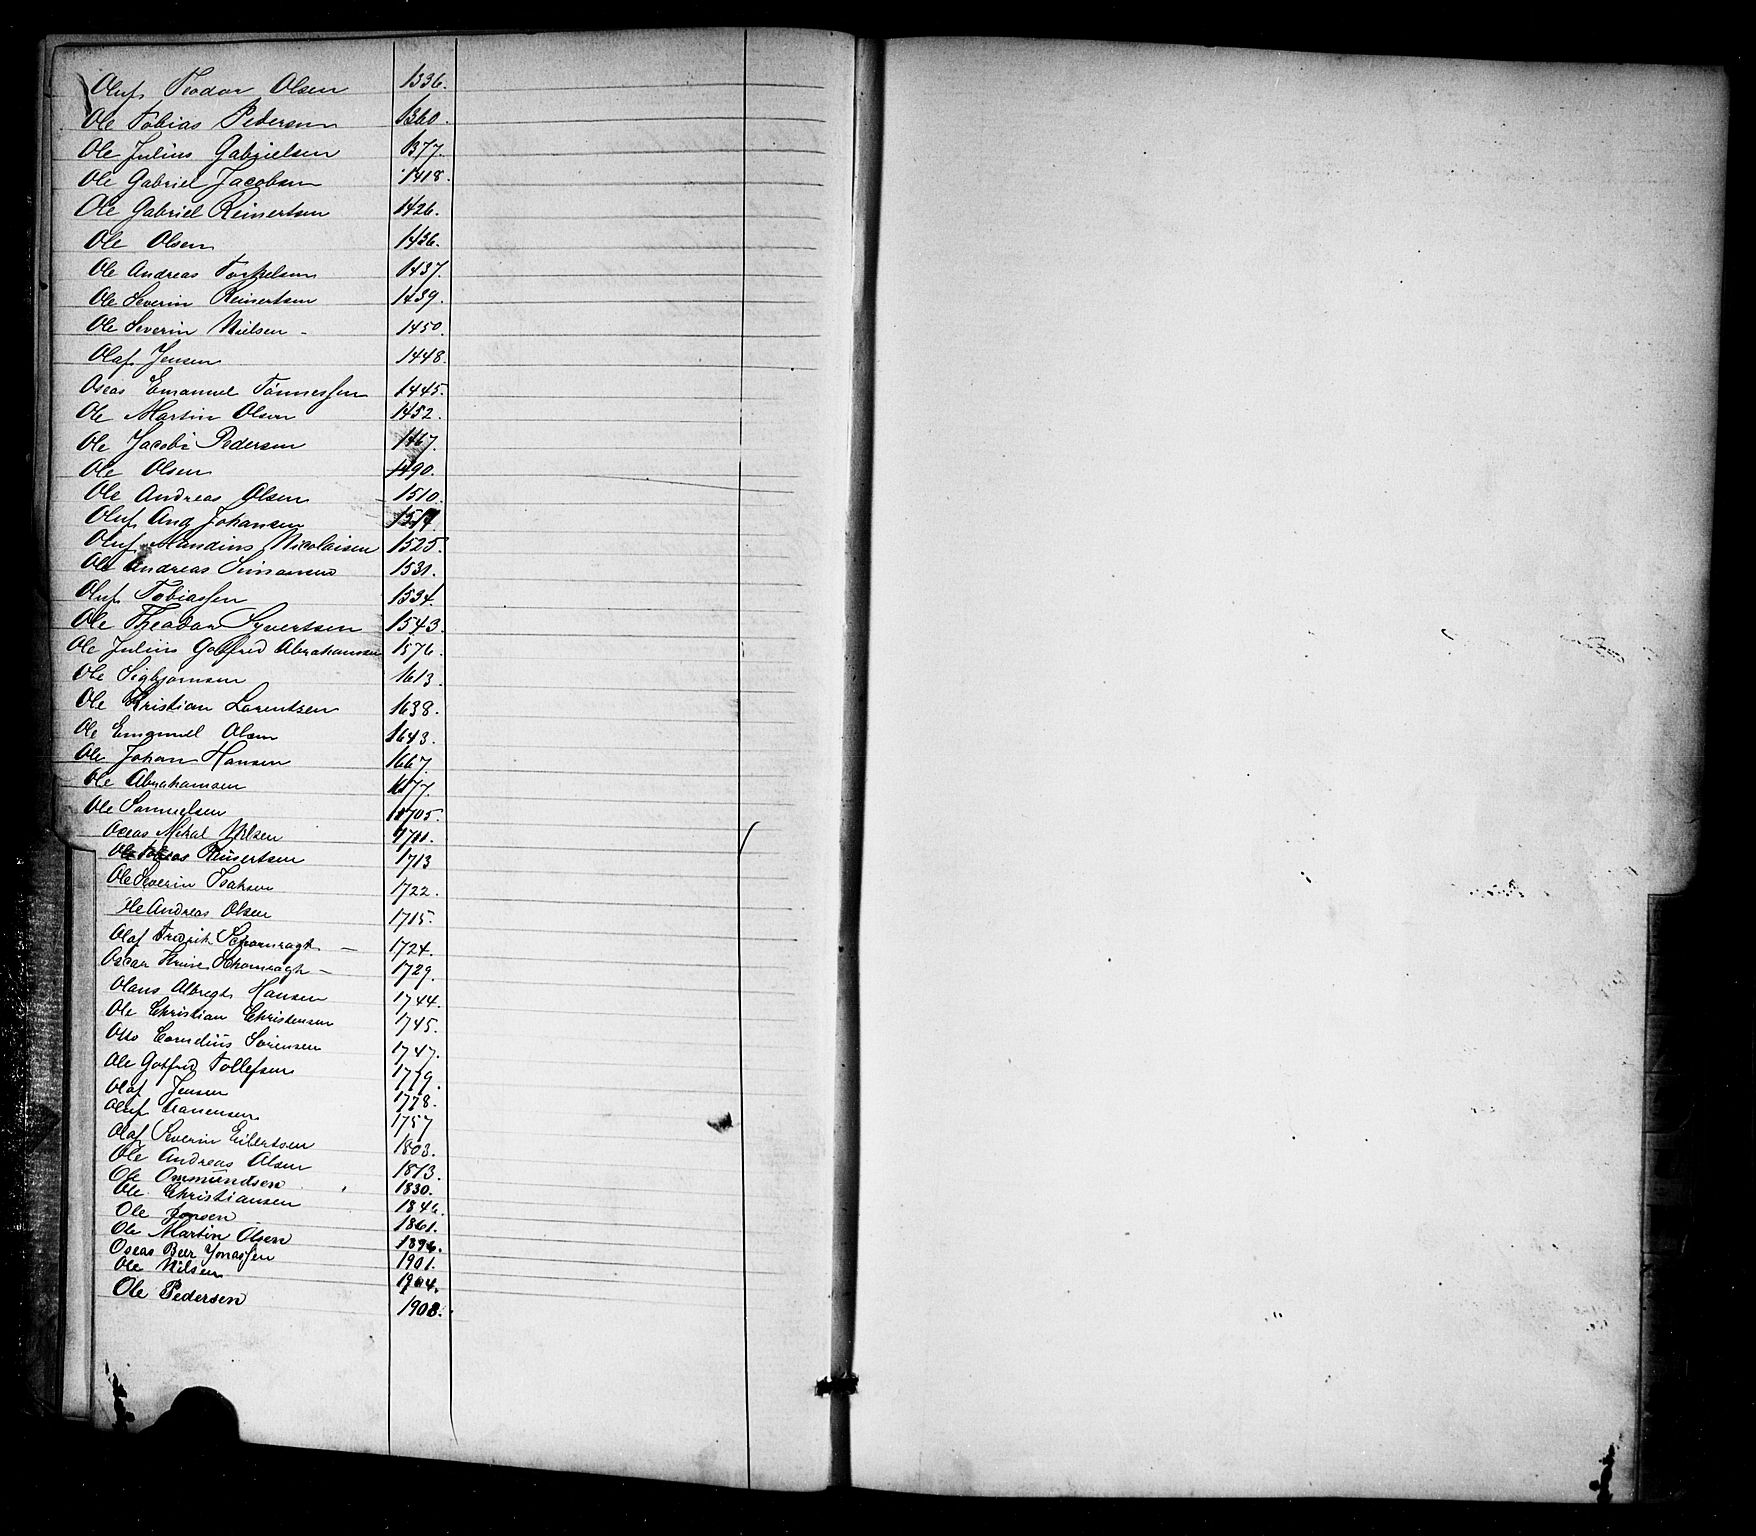 Oluf Teodor Olsen 1336.
Ole Tobias Pedersen 1360.
Ole Julius Gabrielsen 1377.
Ole Gabriel Jacobsen 1418.
Ole Gabriel Reinertsen 1426.
Ole Olsen 1436.
Ole Andreas Torkelsen 1437.
Ole Severin Reinertsen 1439.
Ole Severin Nielsen - 1450.
Olaf Jensen 1448.
Oseas Emanuel Tönnessen 1445.
Ole Martin Olsen 1452.
Ole Jacobi Pedersen 1467.
Ole Olsen 1490.
Ole Andreas Olsen 1510.
Oluf Aug Johansen 1517
Oluf Mandius Nicolaisen 1525.
Ole Andreas Simonsen 1531.
Oluf Tobiassen 1534.
Ole Theodor Syvertsen 1543.
Ole Julius Gotfred Abrahamsen 1576.
Ole Sigbjørnsen 1613.
Ole Kristian Lorentsen 1638.
Ole Emanuel Olsen 1643.
Ole Johan Hansen 1667.
Ole Abrahamsen 1677.
Ole Samuelsen 1705.
Oseas Mikal Nilsen 1711.
Ole Tobias Reinertsen 1713
Ole Severin Isaksen 1722.
Ole Andreas Olsen 1715.
Olaf Fredrik Schomragh - 1724.
Oscar Kruse Schomragh - 1729.
Olaus Albregt Hansen 1744.
Ole Christian Christensen 1745.
Otto Cornelius Sørensen 1747.
Ole Gotfred Tollefsen 1779.
Olaf Jensen 1778.
Oluf Aanensen 1757
Olaf Severin Eilertsen 1803.
Ole Andreas Olsen 1813.
Ole Ommundsen 1830.
Ole Christiansen 1846.
Ole Jonsen 1861.
Ole Martin Olsen 1896.
Oseas Beer Jonassen 1901.
Ole Nilsen 1904.
Ole Pedersen 1908.